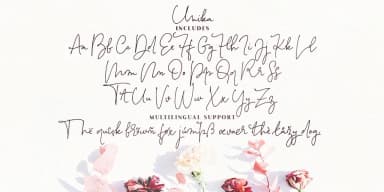 Unika
INCLUDES
Aa Bb Cc Dd Ee Ff Gg Hh Ii Jj Kk Ll
Mm Nn Oo Pp Qq Rr Ss
Tt Uu Vv Ww Xx Yy Zz
MULTILINGUAL SUPPORT
The quick brown fox jumps over the lazy dog